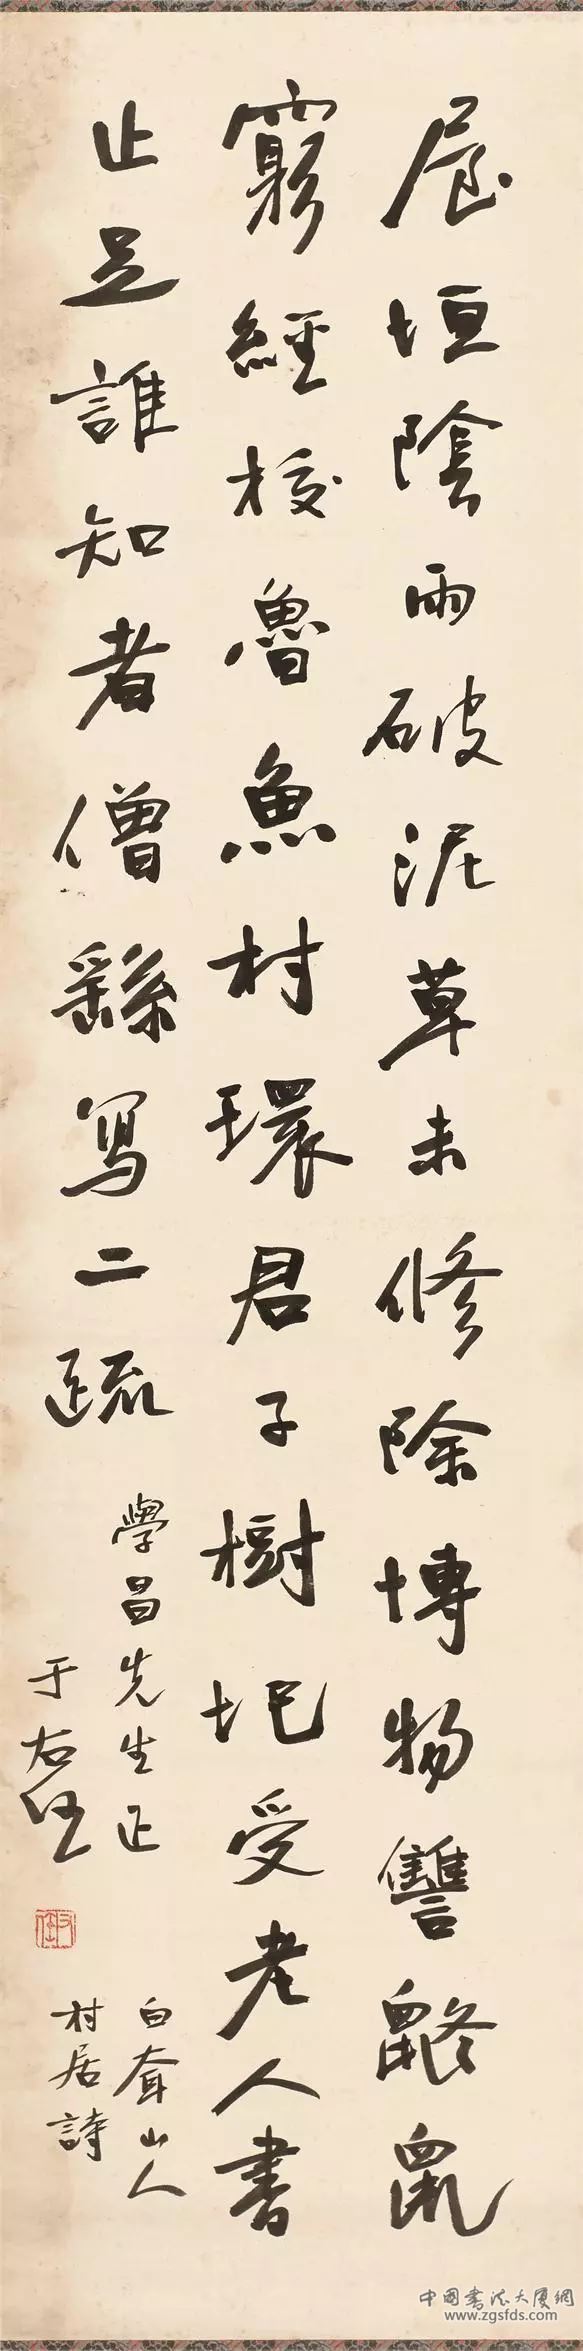 垣陰雨破泥草未修除博物讐鼨鼠
窮經校魯魚村環君子樹圯受老人書
止足誰知者僧繇寫二疏
學昌先生正
于右任
右任
白耷山人
村居詩
中国书法大厦網
www.zgsfds.com